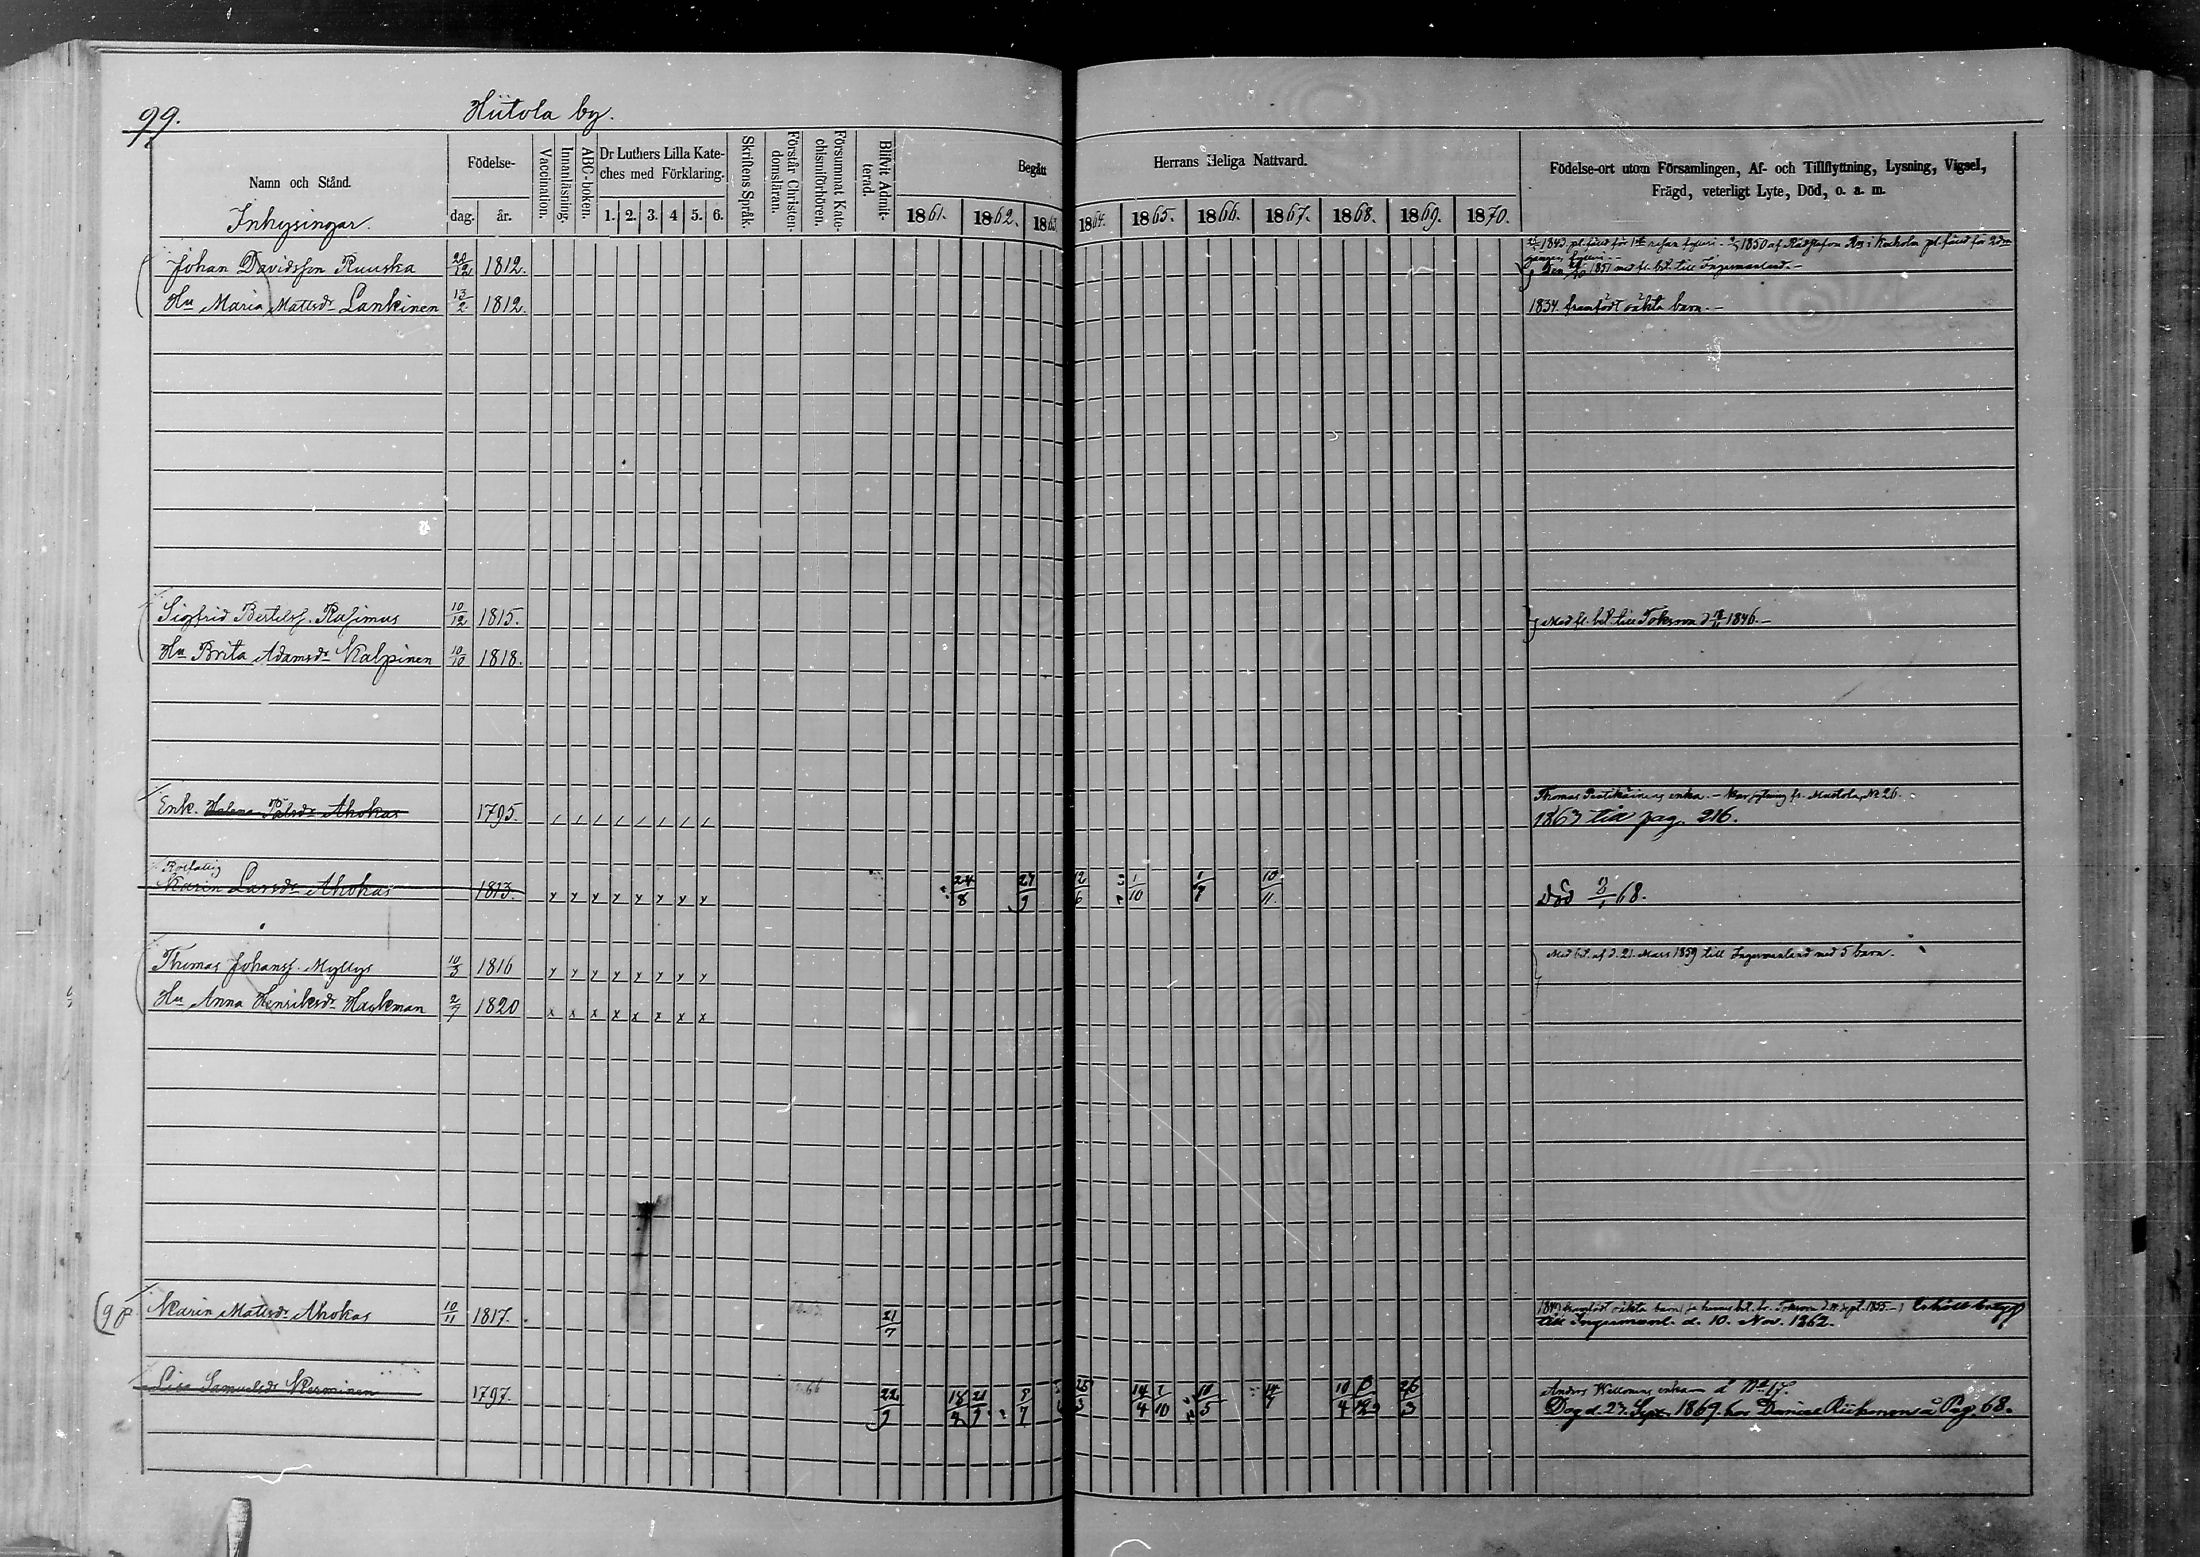 99.
Hiitola by.
Namn och Stånd.
Inhysingar.
Födelse-
dag. år.
Vaccination.
Innanläsning.
ABC-boken.
Dr Luthers Lilla Kate-
ches med Förklaring.
1. 2. 3. 4 5. 6.
Skriftens Språk.
Förstår Christen-
domsläran.
Försummat Kate-
chismiförhören.
Blifvit Admit-
terad.
Begått Herrans Heliga Nattvard.
1861. 1862. 1863 1864. 1865. 1866. 1867. 1868. 1869. 1870.
Födelse-ort utom Församlingen, Af- och Tillflyttning, Lysning, Vigsel,
Frägd, veterligt Lyte, Död, o. a. m.
Johan Davidsson Ruuska 20/12 1812. 1843 pl. för 1850 af i Kexholm pl. för 2dra
gången
Den 1851 med fl. bet. till Ingermanland.
Hu Maria Mattsdr Lankinen 13/2 1812. 1834 framfödt oäkta barn.
Sigfrid Bertelss. Rasimus 10/12 1815. Med fl. bet. till Toksova d. 1846.
Hu Brita Adamsdr Kalpinen 10/10 1818.
Enk. Helena Pålsdr Ahokas 1795. Thomas enka. fr. Mustola, No 26.
1863 till pag. 216.
Rotfattig
Karin Larsdr Ahokas 1813. 24/8 27/9 12/6 1/10 1/7 10/11 död 68.
Thomas Johanss. Myllys 10/3 1816 Med bet. af d. 21. Mars 1859 till Ingermanland med 5 barn.
Hu Anna Henriksdr Hackman 2/7 1820
98. Karin Mattsdr Ahokas 10/11 1817. 21/7 framfödt oäkta barn bet. fr. Toksova d. Sept. 1855. Erhöll betyg
till Ingermanl. d. 10. Nov. 1862.
Lisa Samuelsdr Kerminen 1797. 22/9 18/9 21/9 8/7 25/3 14/4 1/10 10/5 14/7 10/4 26/3 Anders enka å No 17.
Dog d. 23. Sept. 1869 hos Daniel Riikonen å Pag. 68.